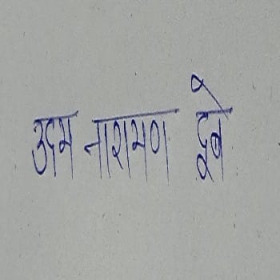 उदय नारायण दूबे